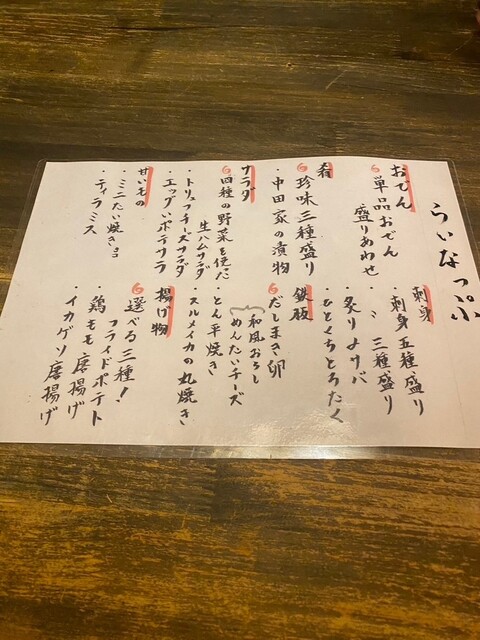 らいなっぷ
おでん
単品おでん
盛りあわせ
肴
珍味三種盛り
・中田家の漬物
サラダ
四種の野菜を使った
生ハムサラダ
・トリュフチーズサラダ
・エッグいポテサラ
甘いもの
・ミニたい焼き
・ティラミス
刺身
・刺身五種盛り
・〃 三種盛り
・炙りよサバ
・ひとくちとろたく
鉄板
だしまき卵
和風おろし
めんたいチーズ
・とん平焼き
・スルメイカの丸焼き
揚げ物
選べる三種!
フライドポテト
・鶏モモ唐揚げ
・イカゲソ唐揚げ